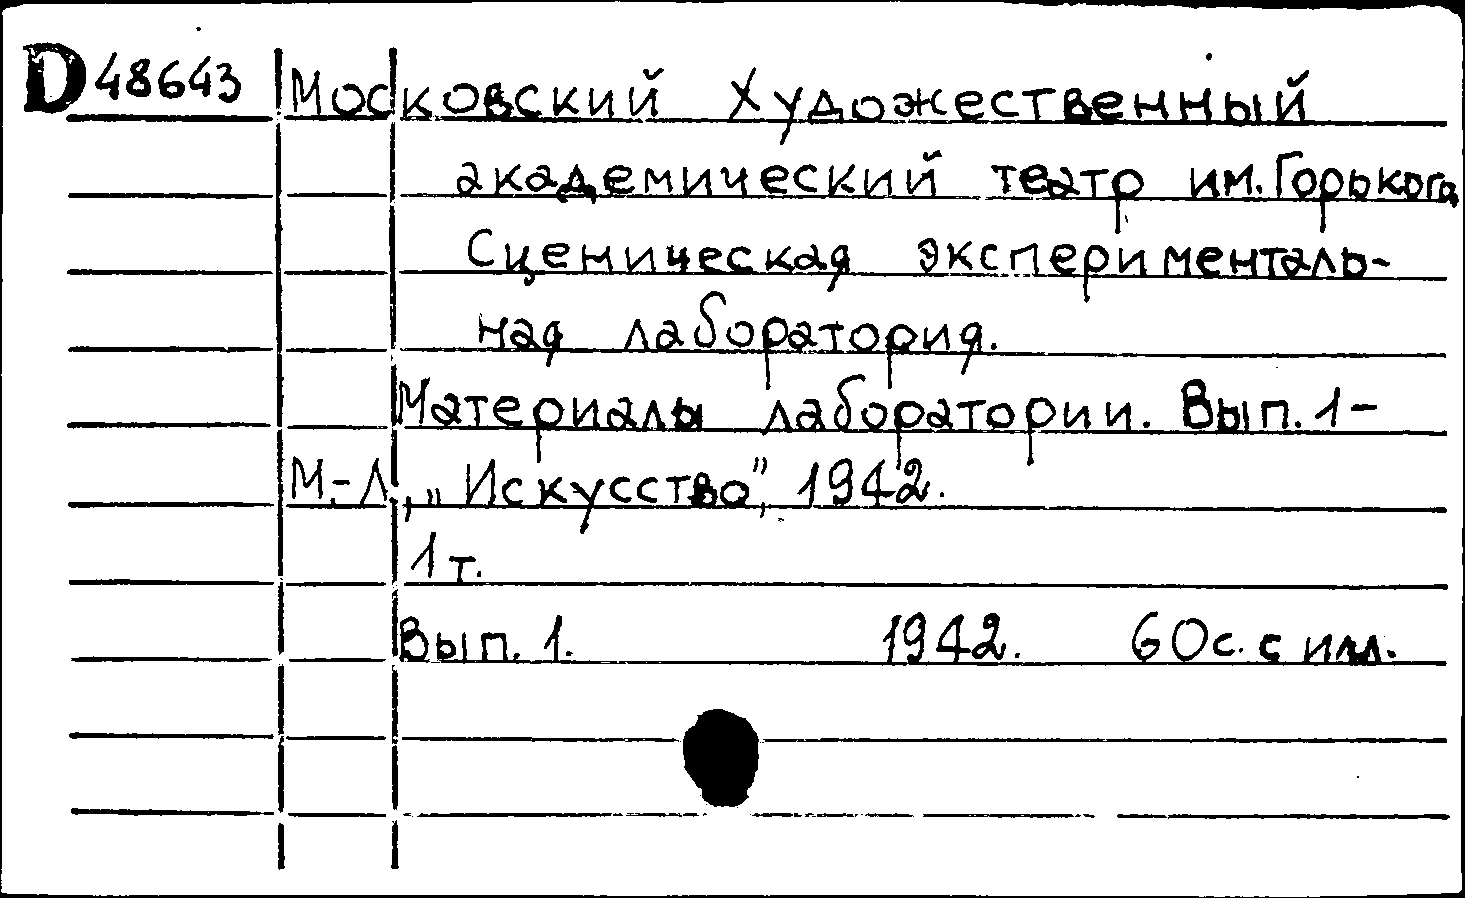 D 48643 Московский Художественный
академический театр им. Горького,
Сценическая эксперименталь-
ная лаборатория.
Материалы лаборатории. Вып. 1-
М.-Л., „Искусство", 1942.
1 т.
Вып. 1. 1942. 60с. с илл.